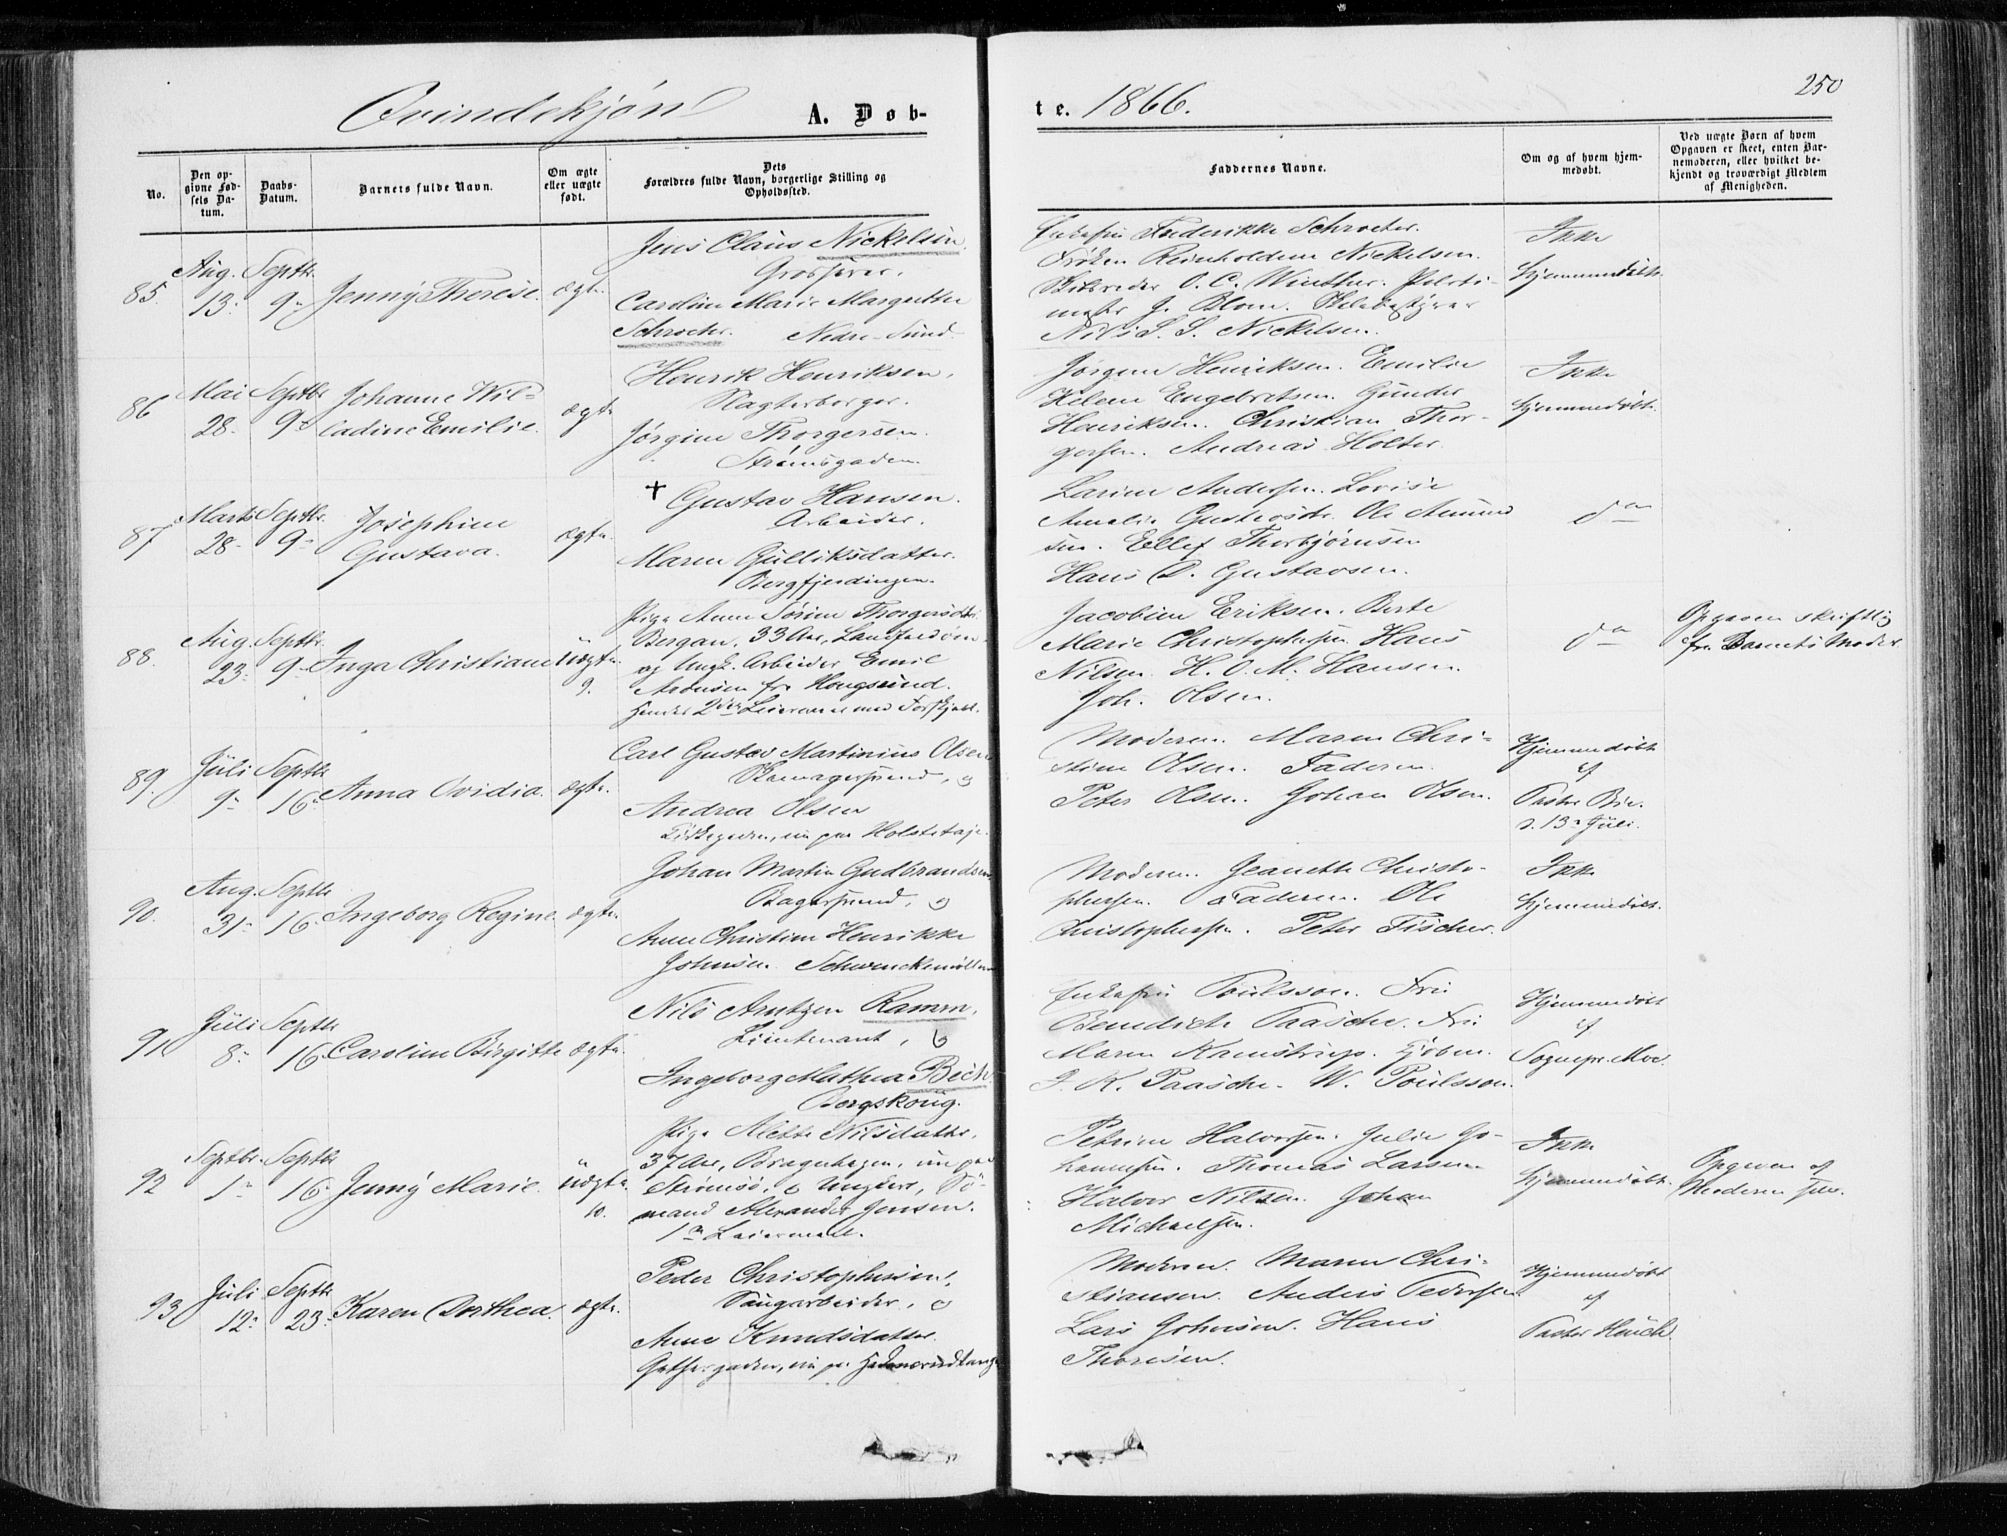 250
Qvindekjøn A. Døb-
te. 1866.
No.
Den op-
givne Fød-
sels Da-
tum.
Daabs-
Datum.
Barnets fulde Navn.
Om ægte
eller uægte
født.
Dets
Forældres fulde Navn, borgerlige Stilling og
Opholdssted.
Faddernes Navne.
Om og af hvem hjem-
medøbt.
Ved uægte Børn af hvem
Opgaven er skeet, enten Bar-
nemoderen, eller hvilket be-
kjendt og troværdigt Medlem
af Menigheden.
85.
Aug.
13.
Septbr.
9
Jenny Therese.
ægte
Jens Claus Nickelsen.
Grosserer.
Caroline Marie Margrethe
Schroeter. Nedre-Sund.
Enkefru Frederikke Schroeter.
Frøken Reinholdine Nickelsen.
Skibsreder O. C. Winther. Politi-
mester J. Blom.
Nils S. S. Nickelsen.
Ikke
hjemmedøbt.
86
Mai
28.
Septbr
9
Johanne Wil-
ladine Emilie.
ægte
Henrik Henriksen,
Slagterborger.
Jørgine Thorgersen.
Strømsgaden.
Jørgine Henriksen. Emilie
Helene Engebretsen. Gunder
Henriksen. Christian Thor-
gersen. Andreas Holter.
Ikke
hjemmedøbt.
87
Marts
28
Septbr.
9
Josephine
Gustava.
ægte.
+ Gustav Hansen.
Arbeider.
Maren Gulliksdatter.
Bergfjerdingen.
Larine Andersen. Lovise
Amalie Gustavsdr. Ole Amund
sen. Ellef Thorbjørnsen
Hans C. Gustavsen.
do
88.
Aug.
23.
Septbr.
9
Inga Christiane
Uægte.
9.
Pige Anne Sørine Thorgersdtr.
Bergan, 33 Aar,
og Ungk. Arbeider Emil
fra Hougsund.
Hendes 2det Leiermaal med Forskjel.
Jacobine Eriksen. Berte
Marie Christophersen. Hans
Nilsen. H. O. M. Hansen.
Joh. Olsen.
do
Opgaven skriftlig
fra Barnets Moder.
89.
Juli
9
Septbr
16
Anna Ovidia.
ægte.
Carl Gustav Martinius Olsen
Skomagersvend, og
Andrea Olsen
Kirkegaden, nu paa
Moderen. Maren Chri-
stine Olsen. Faderen.
Peter Olsen. Johan Olsen.
Hjemmedøbt
af
Pastor
d. 13 Juli.
90.
Aug.
31
Septbr
16
Ingeborg Regine.
ægte.
Johan Martin Gudbrandsen
Bagersvend, og
Anne Christine Henrikke
Johnsen.
Moderen. Jeanette Christo-
phersen. Faderen. Ole
Christophersen. Peter Fischer.
Ikke
hjemmedøbt.
91.
Juli
8
Septbr
16
Caroline Birgitte
ægte.
Nils Arntzen Ramm,
Lieutenant, og
Ingeborg Mathea Bech.
Bergskoug.
Enkefru Poulsson. Fru
Benedicte Paasche. Fru
Maren Kamstrup. Kjøbm.
J. K. Paasche. W. Poulsson.
Hjemmedøbt
af
Sognepr. Moe.
92
Septbr.
1
Septbr
16
Jenny Marie.
Uægte.
10.
Pige Mette Nilsdatter,
37 Aar, Bragerhagen, nu paa
Strømsø, og Ungkarl, Sø-
mand Alexander Jensen.
1ste Leiermaal.
Petrine Halvorsen. Julie Jo-
hannesen. Thomas Larsen
Halvor Nilsen. Johan
Michaelsen.
Ikke
hjemmedøbt.
Opgaven af
Moderen selv.
93
Juli
12
Septbr
23
Karen Dorthea.
ægte.
Peder Christophersen,
Saugarbeider, og
Anne Knudsdatter.
Moderen. Maren Chri-
stiansen. Anders Pedersen
Lars Johnsen. Hans
Thoresen.
Hjemmedøbt
af
Pastor Heuch.